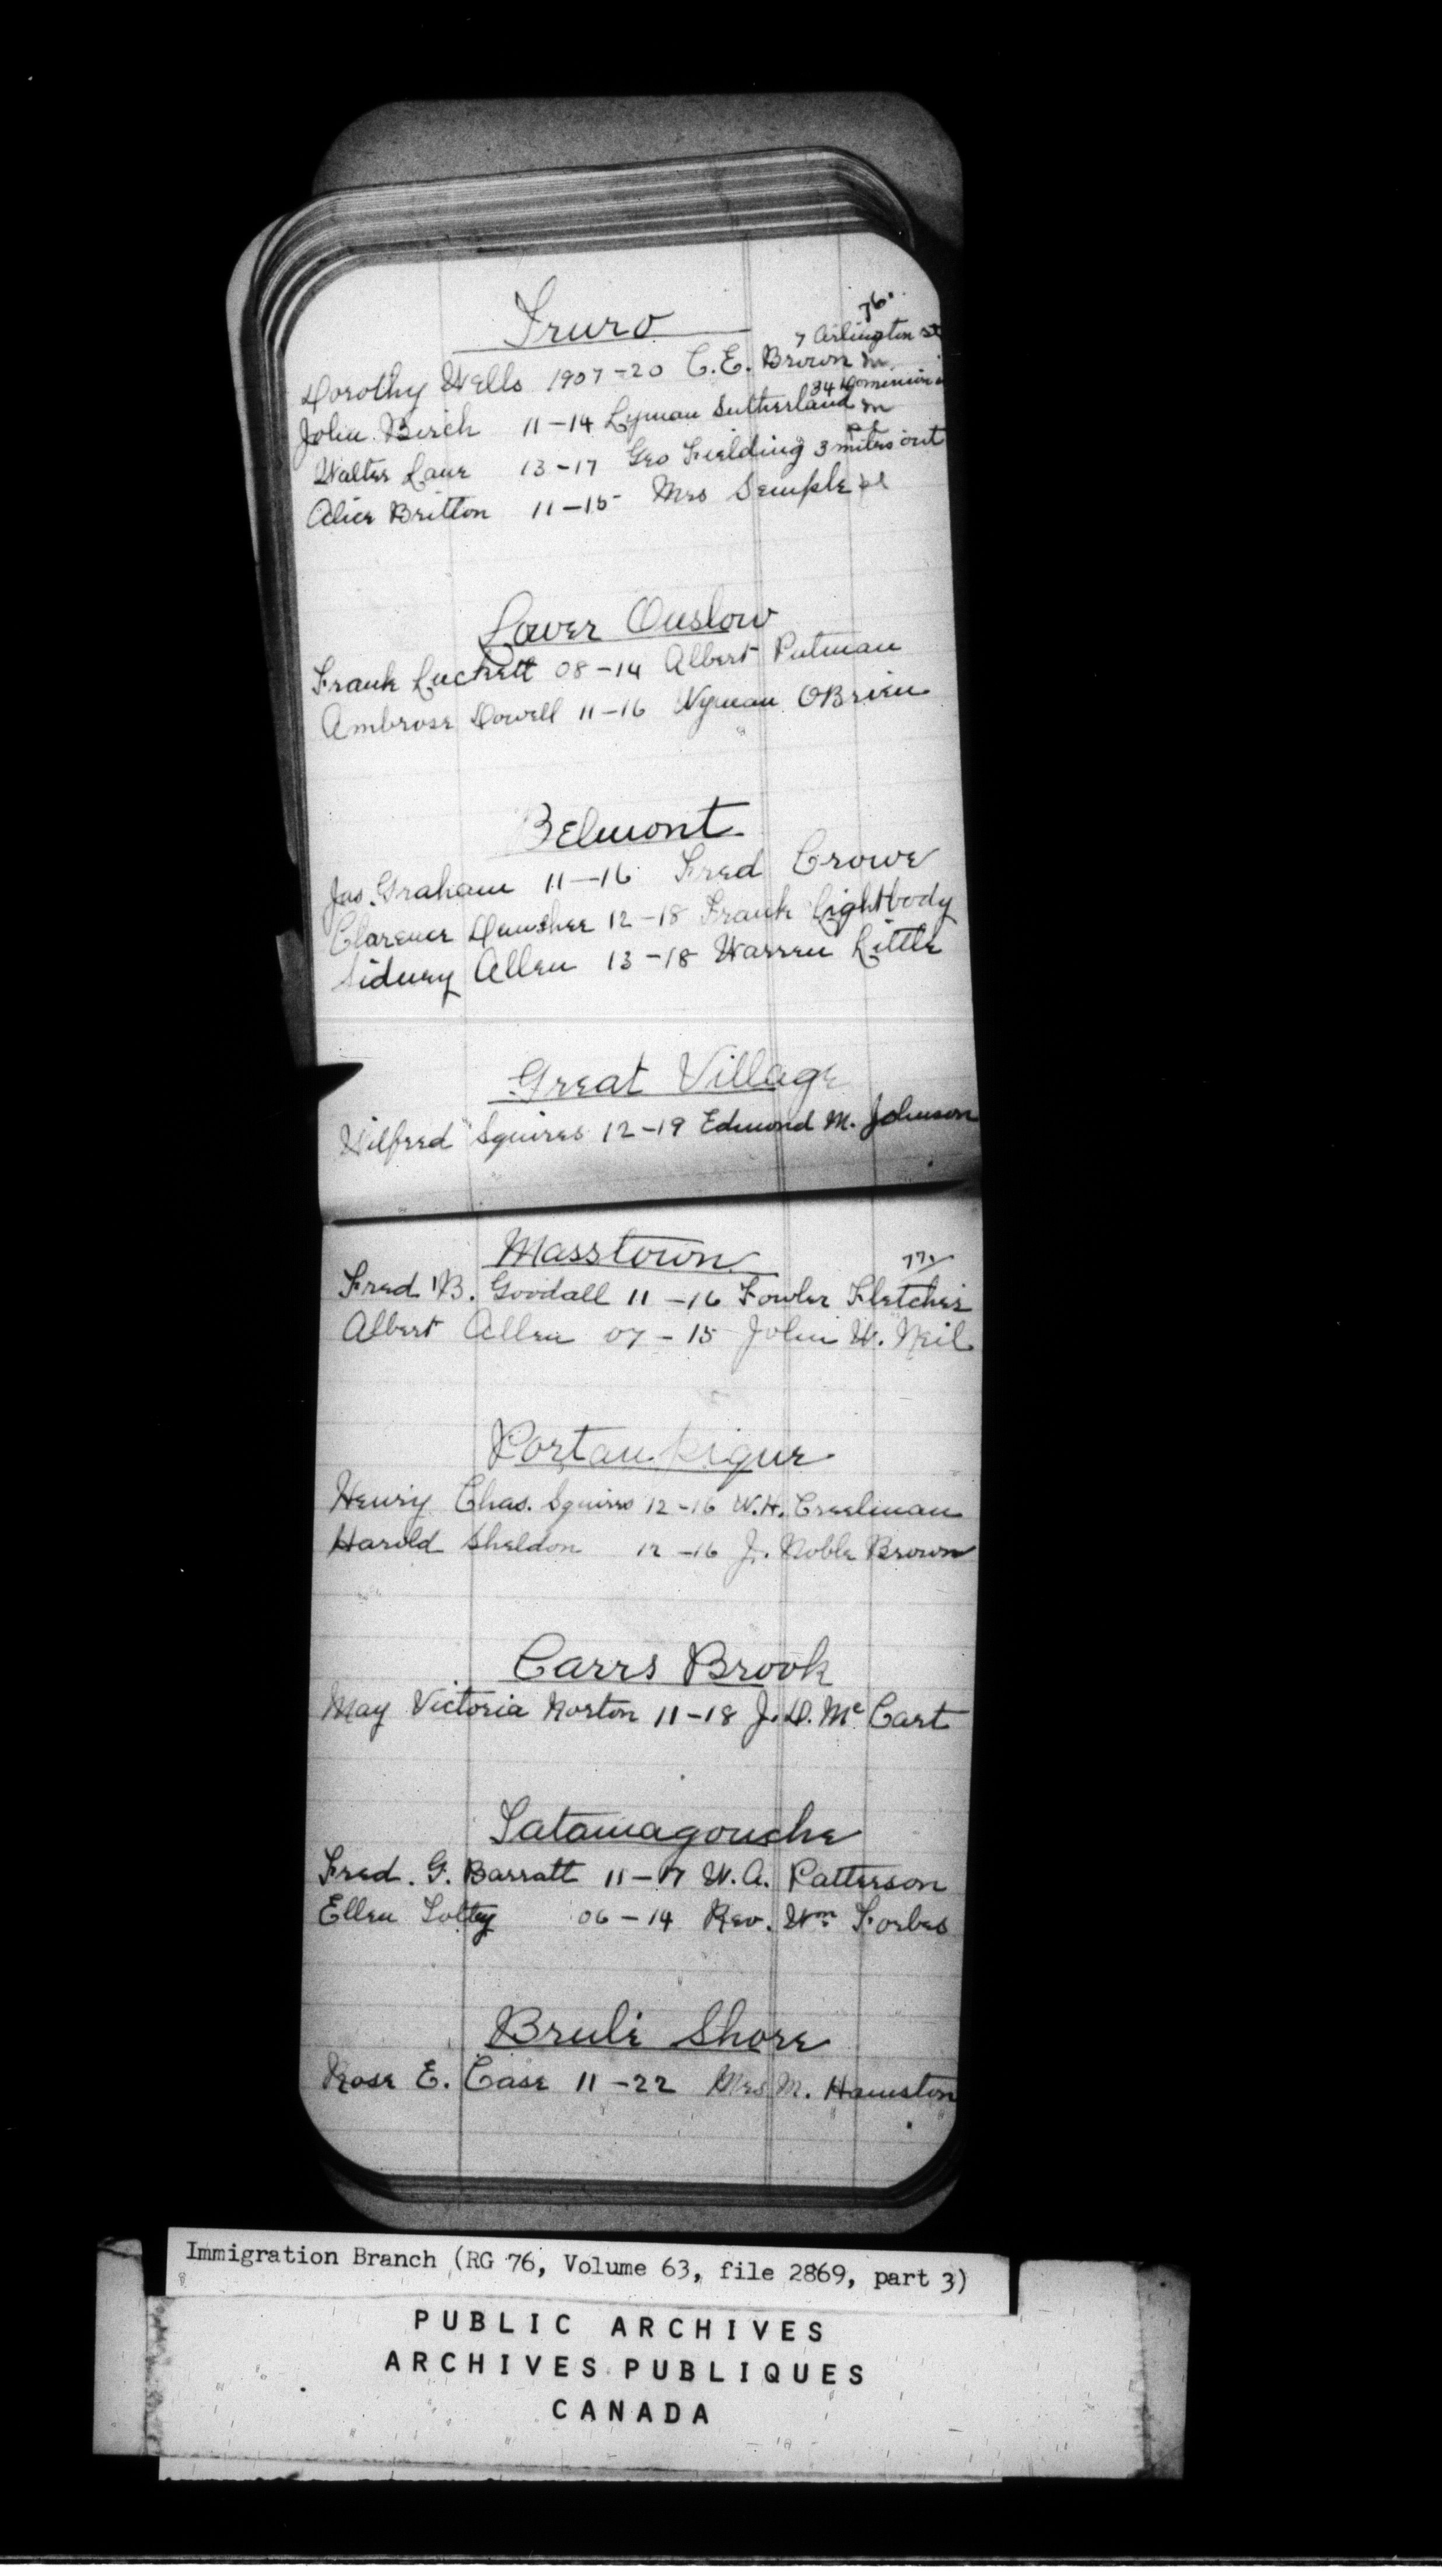 76.
Truro
7 Arlington St
Dorothy Wells 1907-20 C.E. Brown m
34 Dominion
John Birch 11-14 Lyman Sutherland m
Walter Lane 13-17 Geo Fielding 3 miles out
Alice Britton 11-15 Mrs Semple
Lower Onslow
Frank Luckett 08-14 Albert Putman
Ambrose Dowell 11-16 Wyman OBrien
Belmont
Jas. Graham 11-16 Fred Crowe
Clarence 12-18 Frank Lightbody
Sidney Allen 13-18 Warren Little
Great Village
Wilfred Squires 12-19 Edmond M. Johnson
Masstown
77
Fred B. Goodall 11-16 Fowler Fletcher
Albert Allen 07-15 John W. Neil
Portaupique
Henry Chas. Squires 12-16 W.H. Creelman
Harold Sheldon 12-16 J. Noble Brown
Carrs Brook
May Victoria Norton 11-18 J.D. Mc Cart
Tatamagouche
Fred. G. Barratt 11-17 W.A. Patterson
Ellen 06-14 Rev. Wm Forbes
Brule Shore
Rose E. Case 11-22 Mrs M. Hamston
Immigration Branch (RG 76, Volume 63, file 2869, part 3)
PUBLIC ARCHIVES
ARCHIVES PUBLIQUES
CANADA